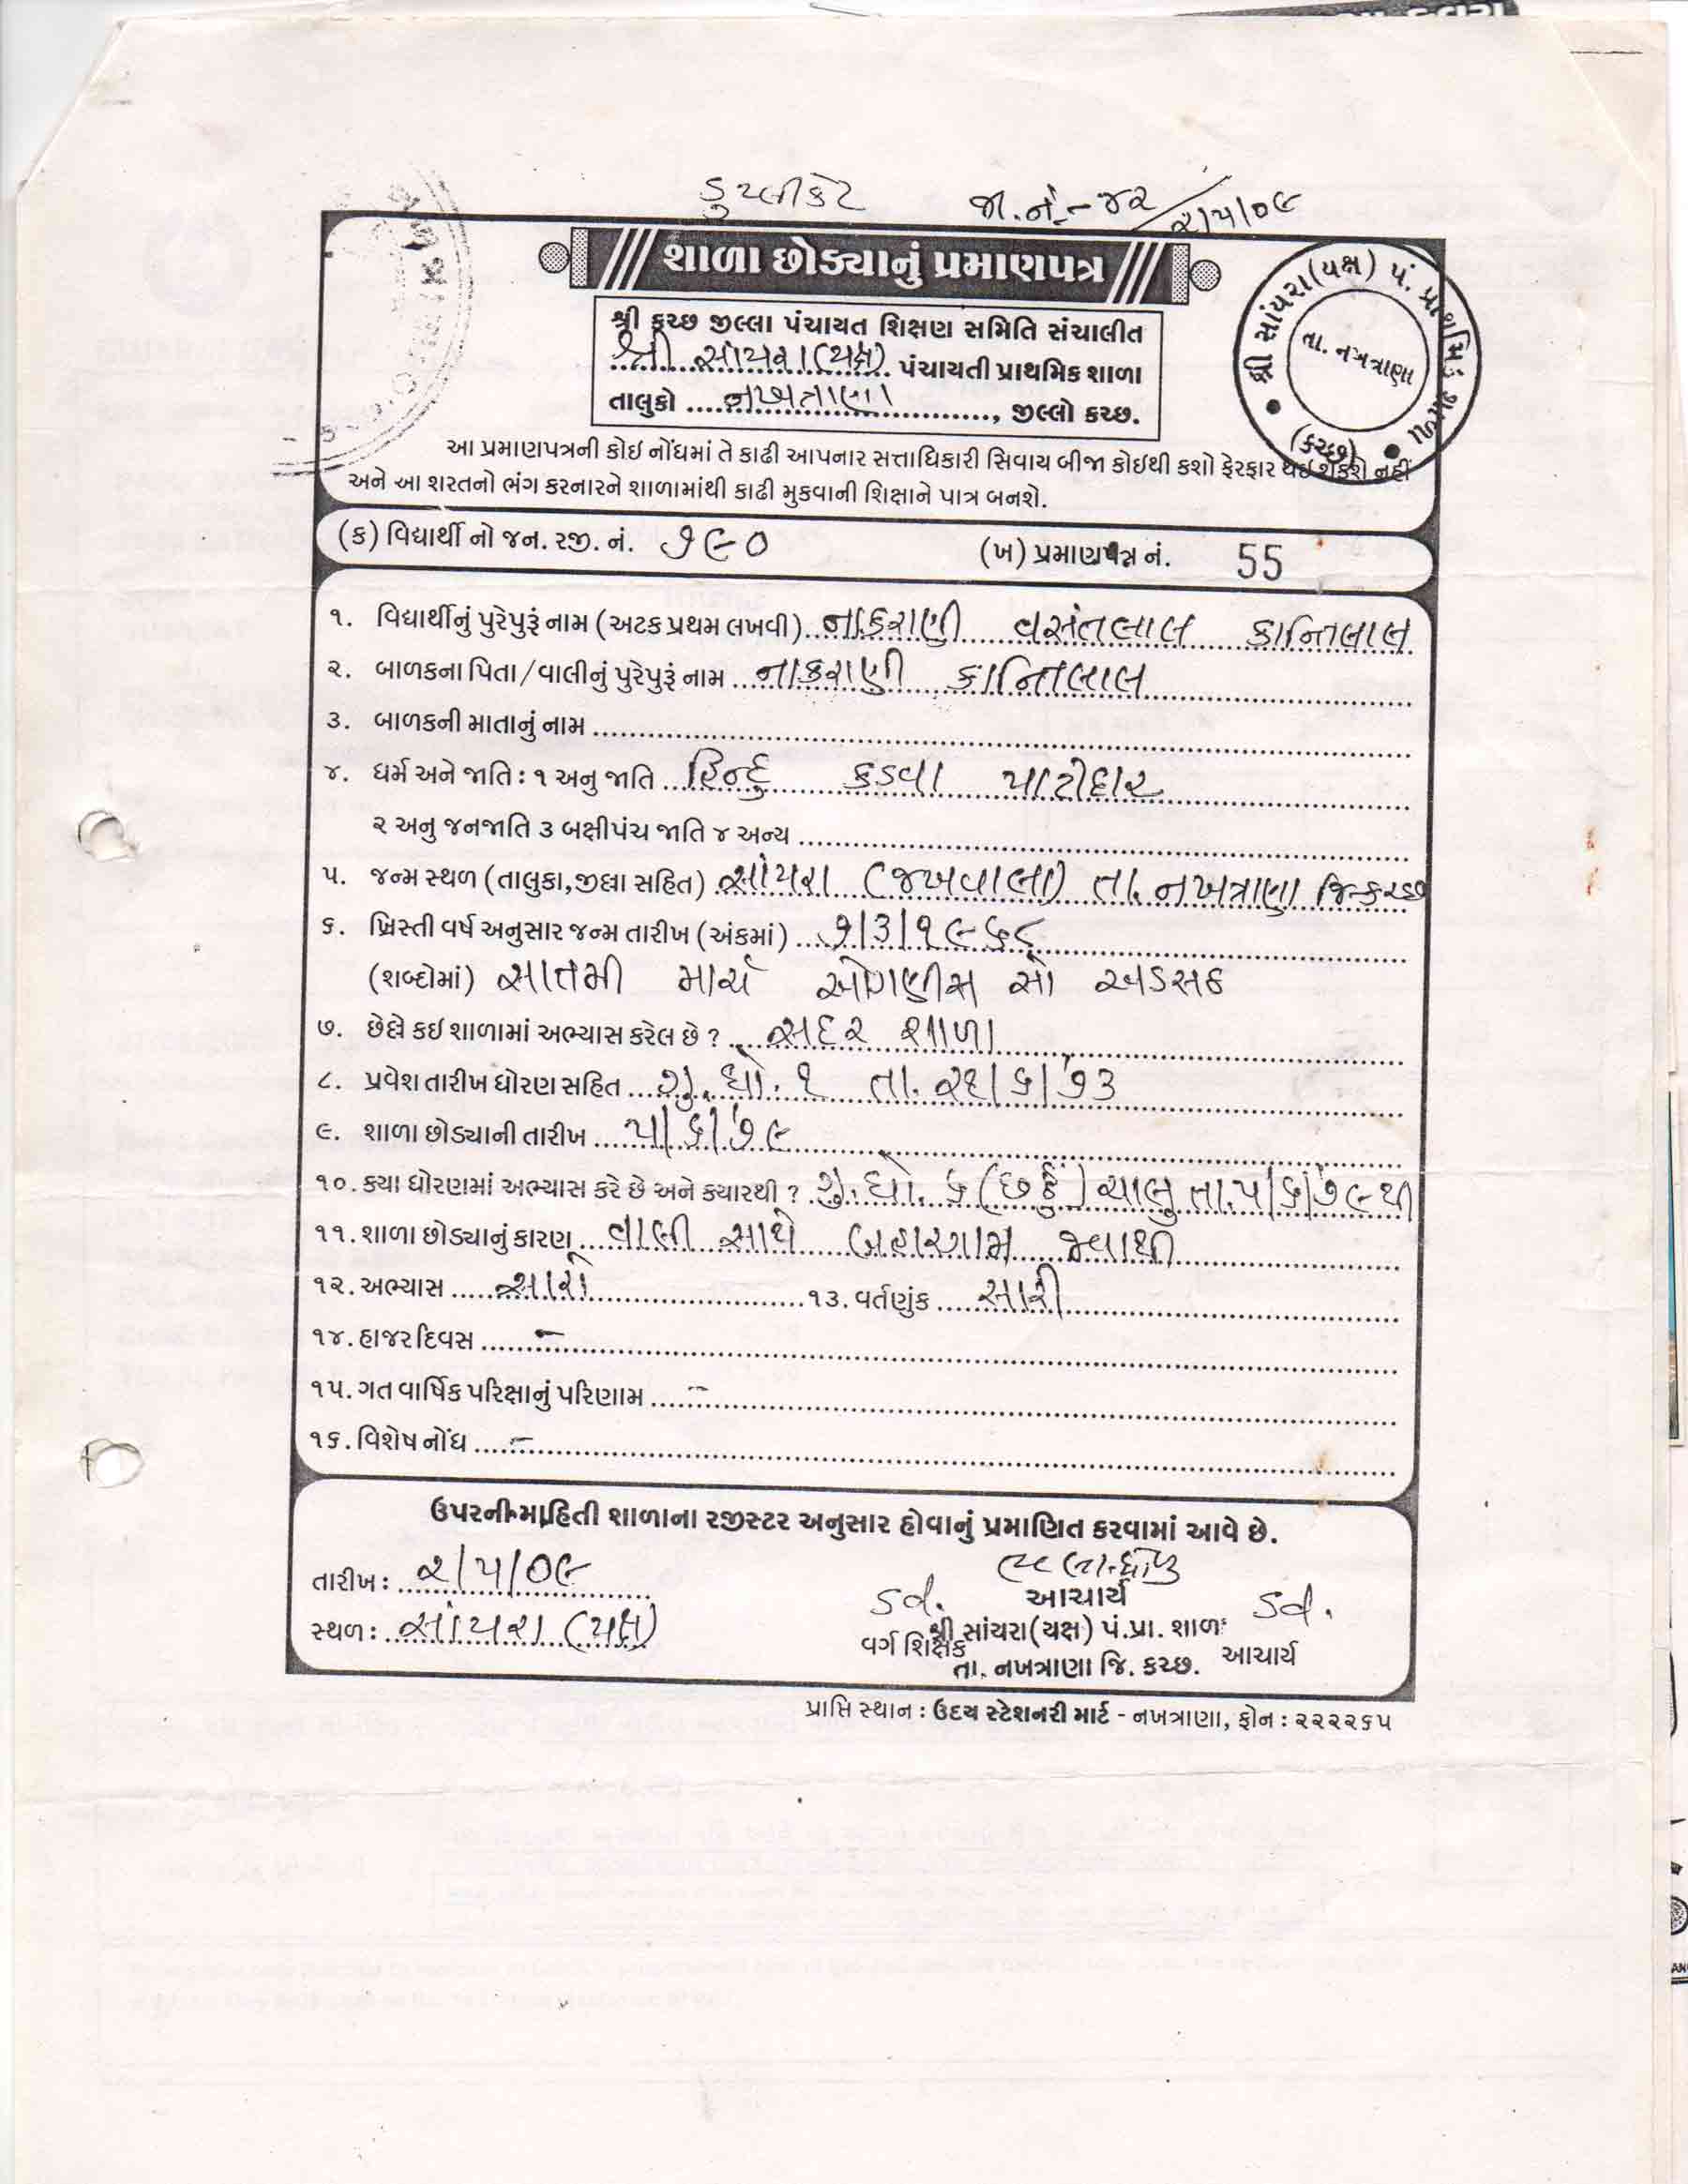 ડુપ્લીકેટ જા.નં.-૪૨ ૨/૫/૦૯
શાળા છોડ્યાનું પ્રમાણપત્ર
શ્રી કચ્છ જીલ્લા પંચાયત શિક્ષણ સમિતિ સંચાલીત
શ્રી સાંયરા (યક્ષ) પંચાયતી પ્રાથમિક શાળા
તાલુકો નખત્રાણા, જીલ્લો કચ્છ.
શ્રી સાંયરા(યક્ષ) પં. પ્રાથમિક શાળા
તા. નખત્રાણા
(કચ્છ)
આ પ્રમાણપત્રની કોઇ નોંધમાં તે કાઢી આપનાર સત્તાધિકારી સિવાય બીજા કોઇથી કશો ફેરફાર થઇ શકશે નહીં
અને આ શરતનો ભંગ કરનારને શાળામાંથી કાઢી મુકવાની શિક્ષાને પાત્ર બનશે.
(ક) વિદ્યાર્થી નો જન. રજી. નં. ૧૯૦ (ખ) પ્રમાણપત્ર નં. 55
૧. વિદ્યાર્થીનું પુરેપુરૂં નામ (અટક પ્રથમ લખવી) નાકરાણી વસંતલાલ કાન્તિલાલ
૨. બાળકના પિતા/વાલીનું પુરેપુરૂં નામ નાકરાણી કાન્તિલાલ
૩. બાળકની માતાનું નામ
૪. ધર્મ અને જાતિ : ૧ અનુ જાતિ હિન્દુ કડવા પાટીદાર
૨ અનુ જનજાતિ ૩ બક્ષીપંચ જાતિ ૪ અન્ય
૫. જન્મ સ્થળ (તાલુકા,જીલ્લા સહિત) સાંયરા (જખવાલા) તા. નખત્રાણા જિ-કચ્છ
૬. ખ્રિસ્તી વર્ષ અનુસાર જન્મ તારીખ (અંકમાં) ૭/૩/૧૯૬૮
(શબ્દોમાં) સાતમી માર્ચ ઓગણીસ સો અડસઠ
૭. છેલ્લે કઇ શાળામાં અભ્યાસ કરેલ છે ? સદર શાળા
૮. પ્રવેશ તારીખ ધોરણ સહિત ગુ. ધો. ૧ તા. ૨૧/૬/'૭૩
૯. શાળા છોડ્યાની તારીખ ૫/૬/'૭૯
૧૦. કયા ધોરણમાં અભ્યાસ કરે છે અને કયારથી ? ગુ. ધો. ૬ (છઠ્ઠું) ચાલુ તા. ૫/૬/'૭૯ થી
૧૧. શાળા છોડ્યાનું કારણ વાલી સાથે બહારગામ જવાથી
૧૨. અભ્યાસ સારો ૧૩. વર્તણુંક સારી
૧૪. હાજર દિવસ -
૧૫. ગત વાર્ષિક પરિક્ષાનું પરિણામ -
૧૬. વિશેષ નોંધ -
ઉપરની માહિતી શાળાના રજીસ્ટર અનુસાર હોવાનું પ્રમાણિત કરવામાં આવે છે.
તારીખ : ૨/૫/૦૯
સ્થળ : સાંયરા (યક્ષ)
આચાર્ય
Sd. Sd.
શ્રી સાંયરા(યક્ષ) પં.પ્રા. શાળા
વર્ગ શિક્ષક આચાર્ય
તા. નખત્રાણા જિ. કચ્છ.
પ્રાપ્તિ સ્થાન : ઉદય સ્ટેશનરી માર્ટ - નખત્રાણા, ફોન : ૨૨૨૨૬૫